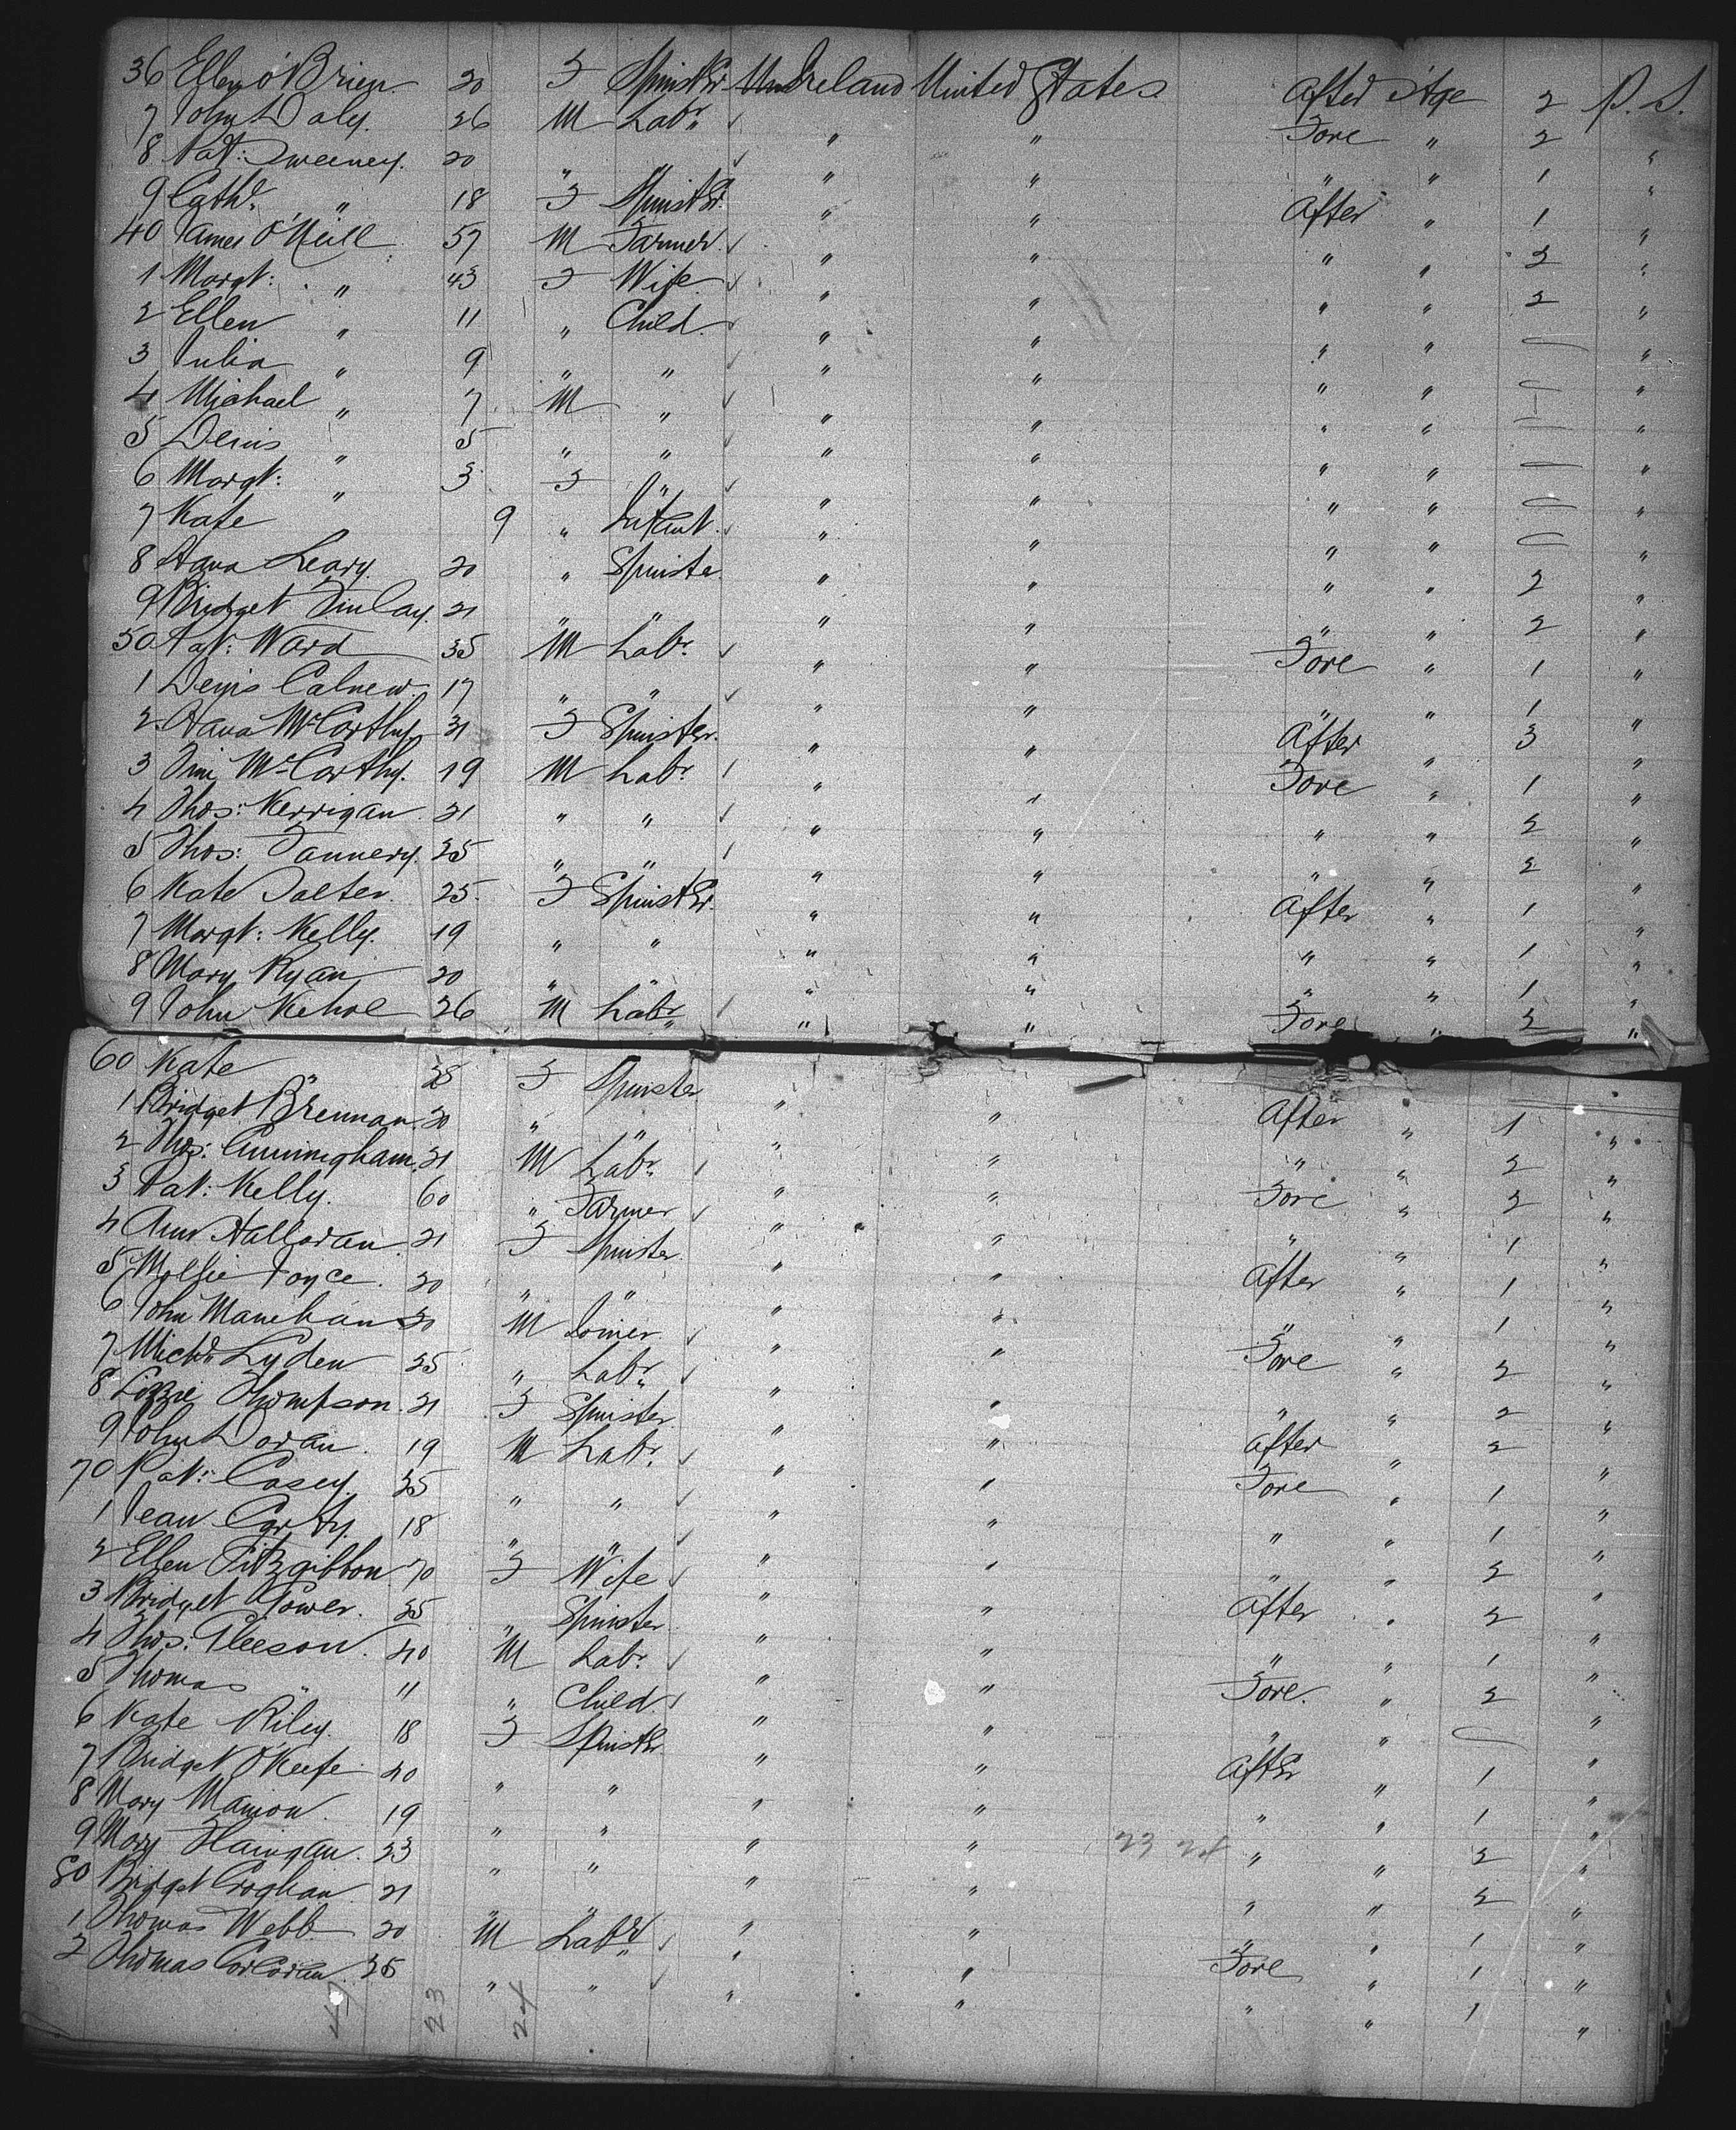 36 Ellen O'Brien 20 F Spinster Ireland United States After Stge 2 P.S.
7 John Daly. 26 M Labr. " " Fore " 2 "
8 Pat: Sweeney. 20 " " " " " 1 "
9 Cath. " 18 F Spinster. " " After " 1 "
40 James O'Neill 57 M Farmer. " " " " 2 "
1 Margt: " 43 F Wife. " " " " 2 "
2 Ellen " 11 " Child. " " " " — "
3 Julia " 9 " " " " " " — "
4 Michael " 7 M " " " " " — "
5 Denis " 5 " " " " " " — "
6 Margt: " 3 F " " " " " — "
7 Kate 9 " Infant. " " " " — "
8 Hana Leary. 20 " Spinster " " " " 2 "
9 Bridget Finlay. 21 " " " " " " 2 "
50 Pat: Ward 35 M Labr. " " Fore " 1 "
1 Denis Calnew. 17 " " " " " " 1 "
2 Hana McCarthy 21 F Spinster. " " After " 3 "
3 Tim McCarthy. 19 M Labr. " " Fore " 1 "
4 Thos: Kerrigan. 21 " " " " " " 2 "
5 Thos: Fannery. 25 " " " " " " 2 "
6 Kate Salter. 25. F Spinster. " " After " 1 "
7 Margt: Kelly. 19 " " " " " " 1 "
8 Mary Ryan 20 " " " " " " 1 "
9 John Kehoe 26 M Labr. " " Fore " 2 "
60 Kate " 25 F Spinster " " After " 1 "
1 Bridget Brennan. 20 " " " " " " 2 "
2 Thos: Cunningham. 21 M Labr. " " Fore " 2 "
3 Pat: Kelly. 60 " Farmer " " " " 1 "
4 Ann Halloran. 21 F Spinster. " " After " 1 "
5 Mollie Joyce. 20 " " " " " " 1 "
6 John Manehan 20 M Joiner. " " Fore " 2 "
7 Michl. Lyden 25 " Labr. " " " " 2 "
8 Lizzie Thompson. 21 F Spinster. " " After " 2 "
9 John Doran. 19 M Labr. " " Fore " 1 "
70 Pat: Casey. 25 " " " " " " 1 "
1 Jean Carty. 18 " " " " " " 2 "
2 Ellen Fitzgibbon. 70 F Wife " " After " 2 "
3 Bridget Power. 25 " Spinster. " " " " 1 "
4 Thos: Gleeson. 40 M Labr. " " Fore. " 2 "
5 Thomas " 11 " Child. " " " " — "
6 Kate Riley. 18 F Spinster. " " After " 1 "
7 Bridget O'Keefe. 20 " " " " " " 1 "
8 Mary Manion. 19 " " " " " " 2 "
9 Mary Flanigan. 23 " " " " 23 24 " " 2 "
80 Bridget Croghan. 21 " " " " " " 1 "
1 Thomas Webb 20 M Labr. " " Fore " 1 "
2 Thomas Corcoran. 25 " " " " " " 1 "
47 23 24